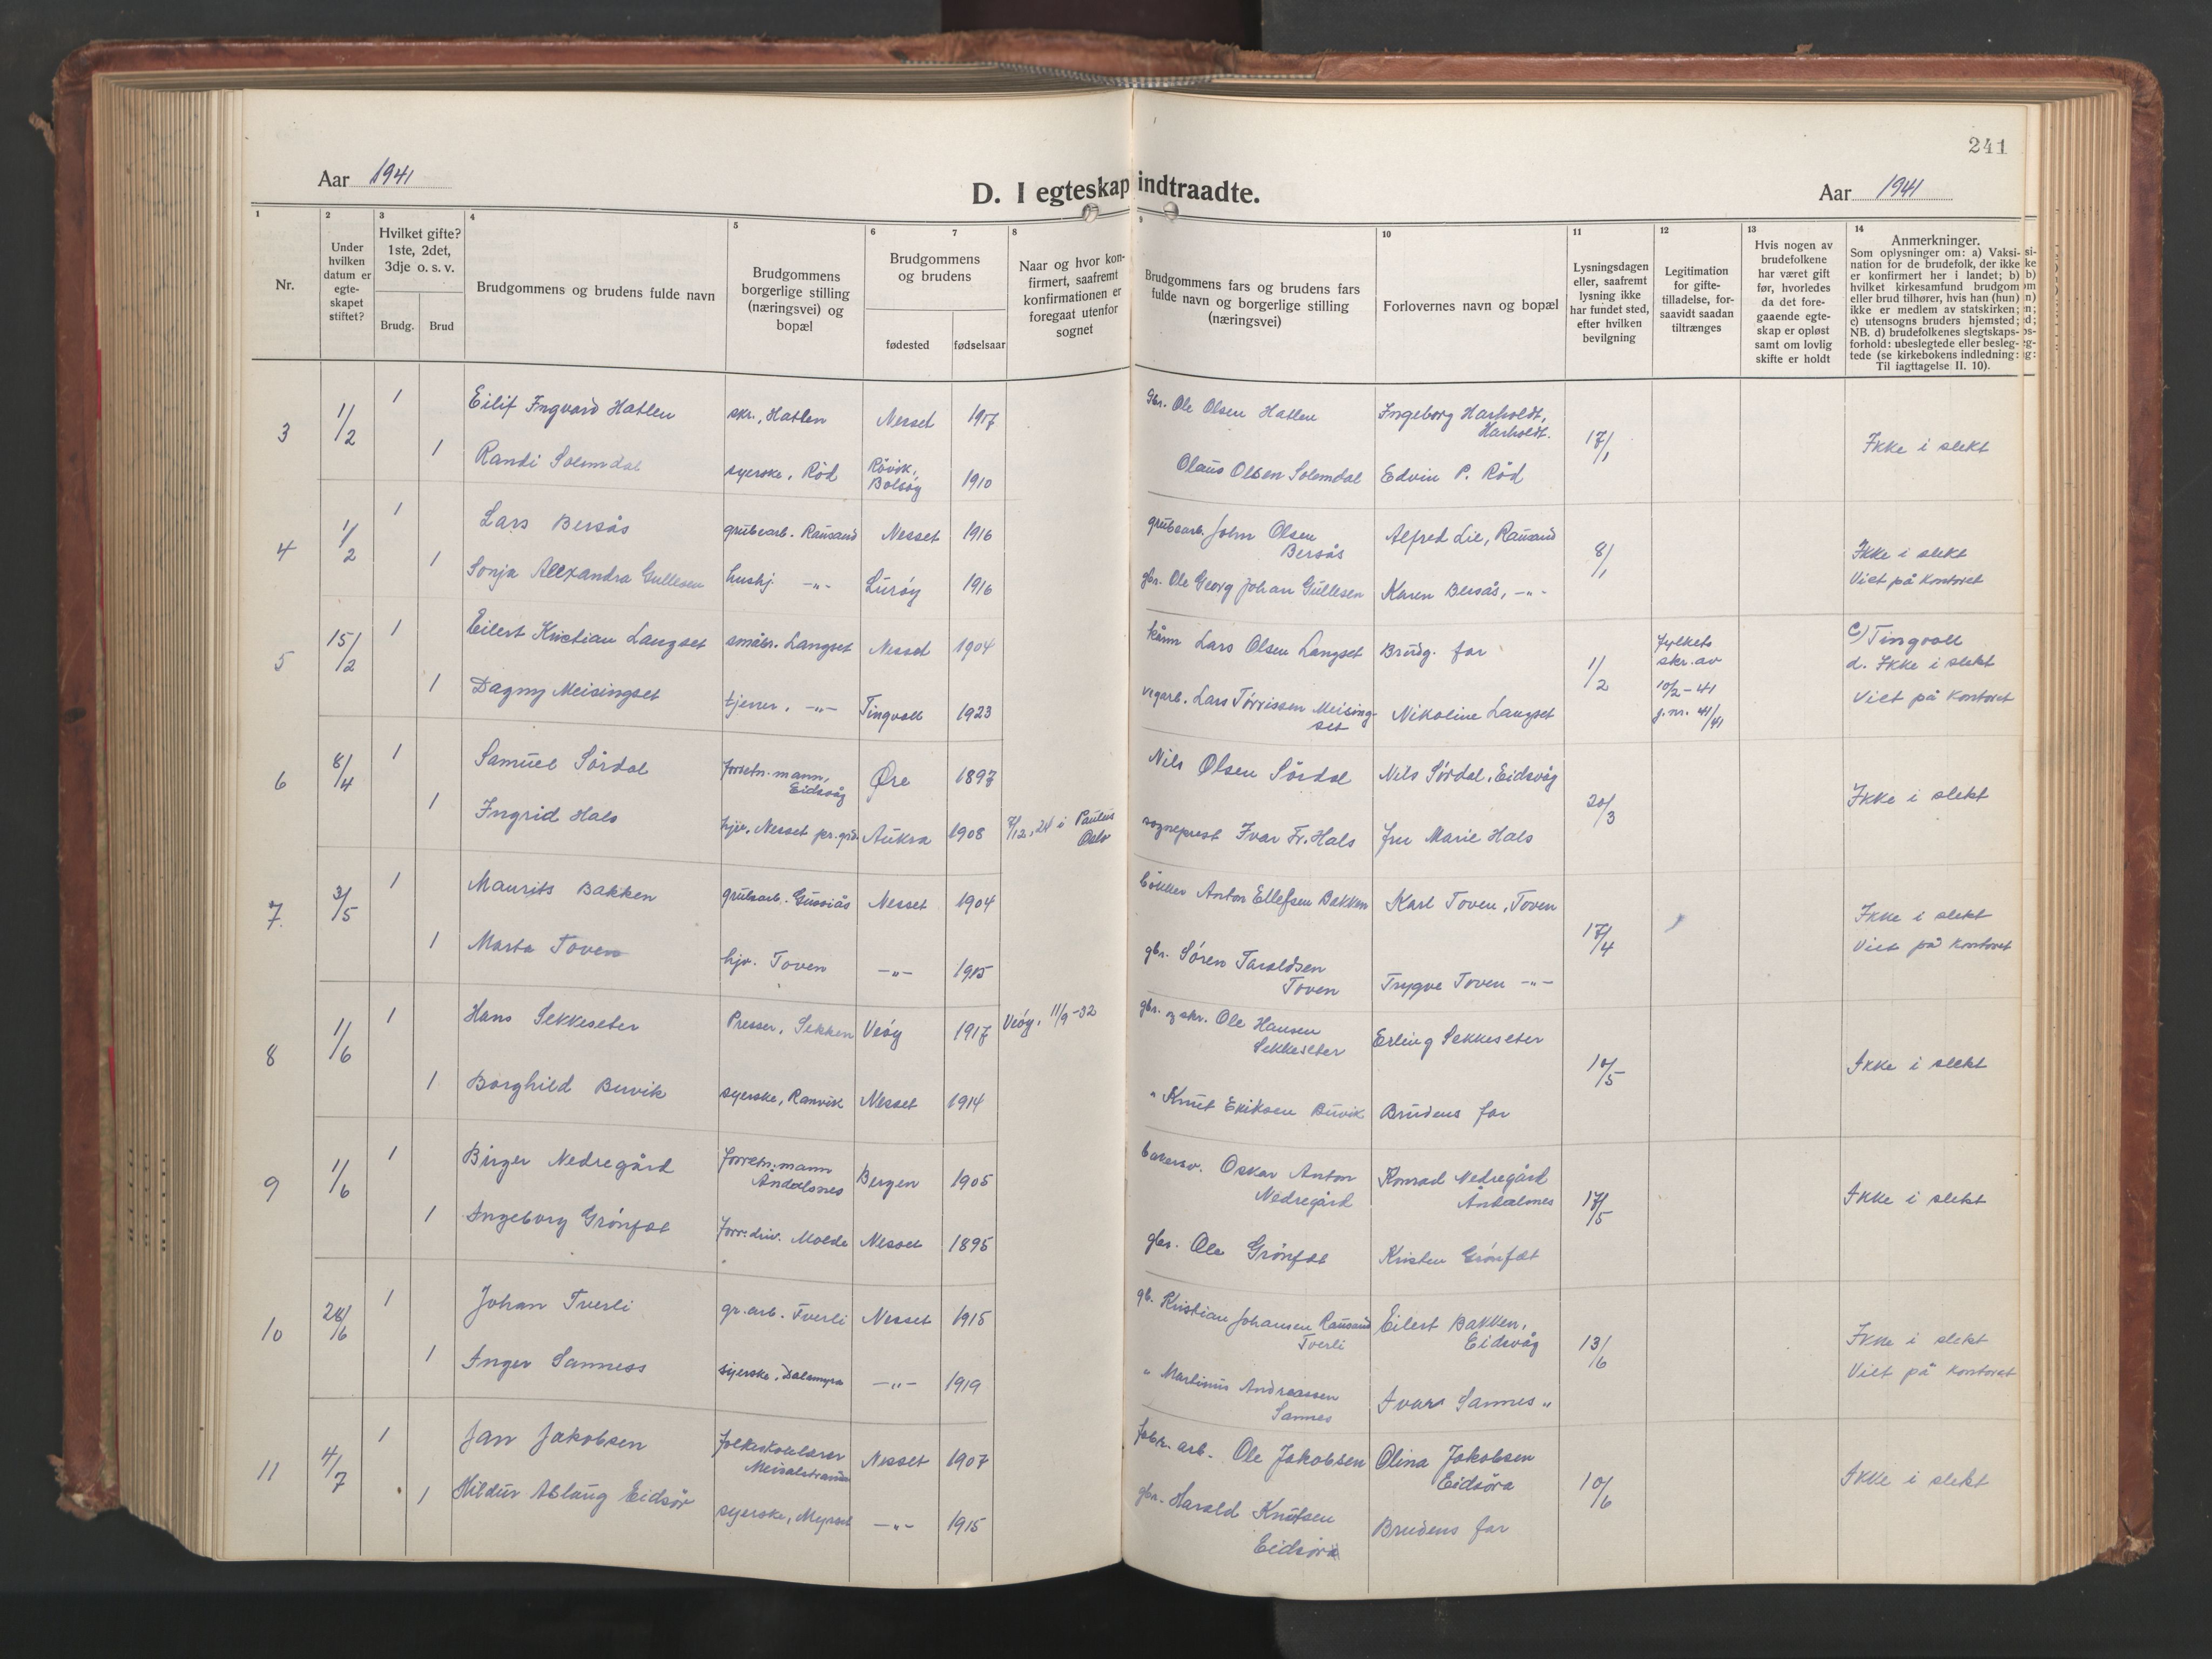 241
Aar 1941
D. I egteskap indtraadte.
Aar 1941
1 2 3 4 5 6 7 8 9 10 11 12 13 14
Nr.
Under hvilken datum er egte-skapet stiftet?
Hvilket gifte? 1ste, 2det, 3dje o. s. v.
Brudg. Brud
Brudgommens og brudens fulde navn
Brudgommens borgerlige stilling (næringsvei) og bopæl
Brudgommens og brudens
fødested fødselsaar
Naar og hvor kon-firmert, saafremt konfirmationen er foregaat utenfor sognet
Brudgommens fars og brudens fars fulde navn og borgerlige stilling (næringsvei)
Forlovernes navn og bopæl
Lysningsdagen eller, saafremt lysning ikke har fundet sted, efter hvilken bevilgning
Legitimation for gifte-tilladelse, for-saavidt saadan tiltrænges
Hvis nogen av brudefolkene har været gift før, hvorledes da det fore-gaaende egte-skap er opløst samt om lovlig skifte er holdt
Anmerkninger.
Som oplysninger om: a) Vaksi-nation for de brudefolk, der ikke er konfirmert her i landet; b) hvilket kirkesamfund brudgom eller brud tilhører, hvis han (hun) ikke er medlem av statskirken; c) utensogns bruders hjemsted; NB. d) brudefolkenes slegtskaps-forhold: ubeslegtede eller besleg-tede (se kirkebokens indledning: Til iagttagelse II. 10).
3 1/2 1 Eilif Ingvard Hatlen skr., Hatlen Nesset 1917 Gbr. Ole Olsen Hatlen Ingeborg Harholdt, Harholdt. 17/1 Ikke i slekt
1 Randi Solemdal syerske, Rød Røvik, Bolsøy 1910 Olaus Olsen Solemdal Edvin P. Rød
4 1/2 1 Lars Bersås grubearb. Rausand Nesset 1916 grubearb. John Olsen Bersås Alfred Lie, Rausand 8/1 Ikke i slekt
Viet på kontoret
1 Sonja Alexandra Gullesen hushj. -"- Lurøy 1916 gbr. Ole Georg Johan Gullesen Karen Bersås, -"-
5 15/2 1 Eilert Kristian Langset småbr. Langset Nesset 1904 Lars Olsen Langset Brudg. far 1/2 Fylkets skr. av 10/2-41 j.nr. 41/41 c) Tingvoll
d. Ikke i slekt
Viet på kontoret
1 Dagny Meisingset tjener, -"- Tingvoll 1923 vegarb. Lars Tørrissen Meising-set Nikoline Langset
6 8/4 1 Samuel Sørdal forretn.mann, Eidsvåg Øre 1897 Nils Olsen Sørdal Nils Sørdal, Eidsvåg 20/3 Ikke i slekt
1 Ingrid Hals hjv. Nesset pr.grd. Aukra 1908 /12, 24 i Paulus Oslo sogneprest Ivar Fr. Hals fru Marie Hals
7. 3/5 1 Maurits Bakken grubearb. Gussiås Nesset 1904 bøkker Anton Ellefsen Bakken Karl Toven, Toven 17/4 Ikke i slekt
Viet på kontoret
1 Marta Toven hjv. Toven -"- 1915 gbr. Søren Taraldsen Toven Trygve Toven -"-
8 1/6 1 Hans Sekkeseter Presser, Sekken Veøy 1917 Veøy, 11/9-32 gbr. og skr. Ole Hansen Sekkeseter Erling Sekkeseter 10/5 Ikke i slekt
1 Borghild Buvik syerske, Ranvik Nesset 1914 " Knut Eriksen Buvik Brudens far
9 1/6 1 Birger Nedregård forretn.mann Åndalsnes Bergen 1905 Oskar Anton Nedregård Konrad Nedregård Åndalsnes 17/5 Ikke i slekt
1 Ingeborg Grønfæt forr.driv. Molde Nesset 1895 gbr. Ole Grønfæt Kristen Grønfæt
10 28/6 1 Johan Tverli gr.arb. Tverli Nesset 1915 gb. Kristian Johansen Rausand Tverli Eilert Bakken, Eidsvåg 13/6 Ikke i slekt
Viet på kontoret
1 Inger Sanness syerske, Dalamyra -"- 1919 " Martinus Andreassen Sannes Ivar Sannes "
11 4/7 1 Jan Jakobsen folkeskolelærer Meisalstranda Nesset 1907 fabr. arb. Ole Jakobsen Olina Jakobsen Eidsøra 10/6 Ikke i slekt
1 Hildur Aslaug Eidsør syerske, Myrset -"- 1915 gbr. Harald Knutsen Eidsøra Brudens far